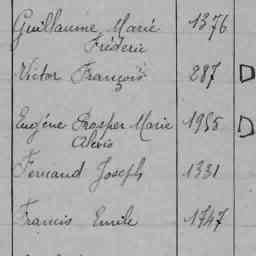 Guillaume Marie 1376
Frédéric
Victor François 287 D
Eugène Prosper Marie 1958 D
Alexis
Fernand Joseph 1331
Francis Emile 1747